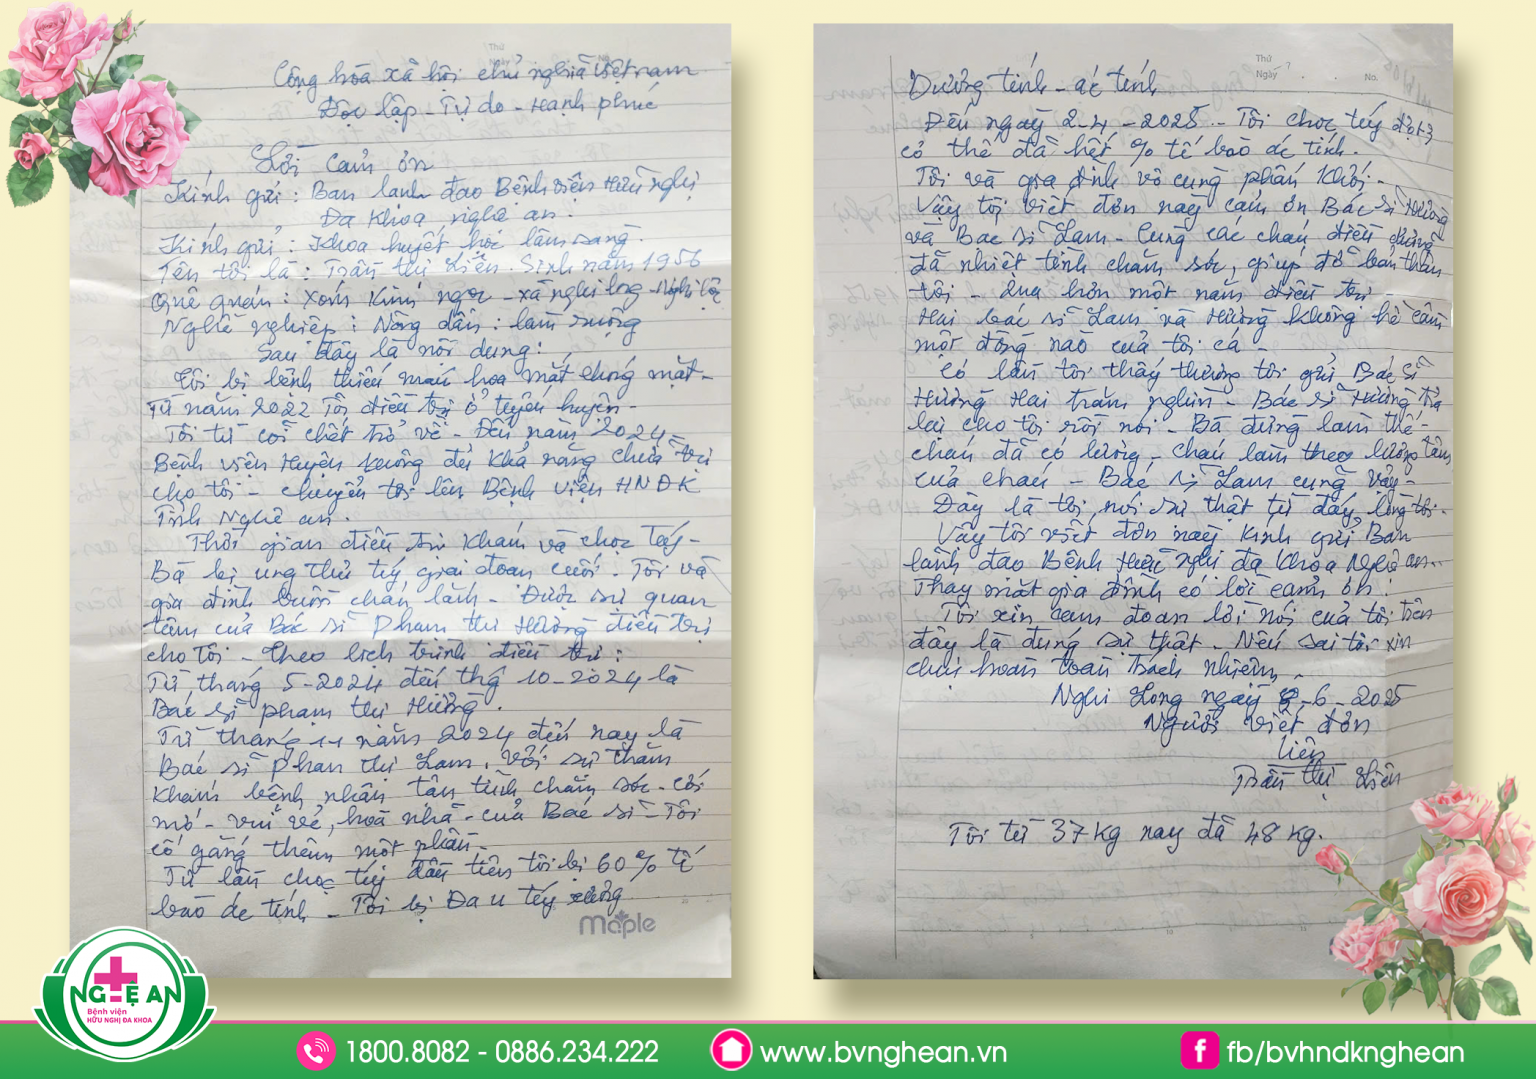 Cộng hoà xã hội chủ nghĩa Việt nam
Độc lập - Tự do - Hạnh phúc
Lời cảm ơn
Kính gửi : Ban lanh đạo Bệnh viện Hữu nghị
Đa Khoa nghệ an.
Kính gửi : Khoa huyết học lâm sàng.
Tên tôi là : Trần thị Liên. Sinh năm 1956
Quê quán : Xóm Kim ngọc - xã nghi long - Nghi lộc
Nghề nghiệp : Nông dân : làm ruộng
Sau đây là nội dung :
Tôi bị bệnh thiếu máu hoa mắt chóng mặt -
Từ năm 2022 Tôi điều trị ở tuyến huyện -
Tôi từ cõi chết trở về - Đến năm 2024 -
Bệnh viện Huyện không đủ khả năng chữa trị
cho tôi - chuyển tôi lên Bệnh viện HNĐK
Tỉnh Nghệ an.
Thời gian điều trị Khám và chọc tủy -
Bà bị ung thư tủy, giai đoạn cuối. Tôi và
gia đình buồn chán lắm - Được sự quan
tâm của Bác sĩ Phạm thị Hường điều trị
cho Tôi - theo lịch trình điều trị :
Từ tháng 5-2024 đến thg 10-2024 là
Bác sĩ phạm thị Hường.
Từ tháng 11 năm 2024 đến nay là
Bác sĩ Phan thị Lam. Với sự thăm
khám bệnh nhân tận tình chăm sóc - cởi
mở - vui vẻ, hoà nhã - của Bác sĩ - Tôi
cố gắng thêm một phần -
Từ lần chọc tủy đầu tiên tôi bị 60% tế
bào ác tính - Tôi bị Đa u tủy xương
maple
Thứ
Ngày
No.
Dương tính - ác tính
Đến ngày 2-4-2025 - Tôi chọc tủy đợt 3
có thể đã hết % tế bào ác tính.
Tôi và gia đình vô cùng phấn khởi -
Vậy tôi viết đơn này cảm ơn Bác sĩ Hường
và Bác sĩ Lam - Cùng các cháu điều dưỡng
đã nhiệt tình chăm sóc, giúp đỡ bản thân
tôi - Qua hơn một năm điều trị -
Hai bác sĩ Lam và Hường không hề cầm
một đồng nào của tôi cả -
Có lần tôi thấy thương tôi gửi Bác sĩ
Hường Hai trăm nghìn - Bác sĩ Hường trả
lại cho tôi rồi nói - Bà đừng làm thế -
cháu đã có lương - cháu làm theo lương tâm
của cháu - Bác sĩ Lam cũng vậy -
Đây là tôi nói sự thật từ đáy lòng tôi -
Vậy tôi viết đơn này Kính gửi Ban
lãnh đạo Bệnh Hữu nghị đa Khoa Nghệ an...
Thay mặt gia đình có lời cảm ơn !
Tôi xin cam đoan lời nói của tôi trên
đây là đúng sự thật - Nếu sai tôi xin
chịu hoàn toàn trách nhiệm -
Nghi Long ngày -6-2025
Người viết đơn
Liên
Trần thị Liên
Tôi từ 37 kg nay đã 48 kg.
NGHỆ AN
Bệnh viện
HỮU NGHỊ ĐA KHOA
1800.8082 - 0886.234.222
www.bvnghean.vn
fb/bvhndknghean